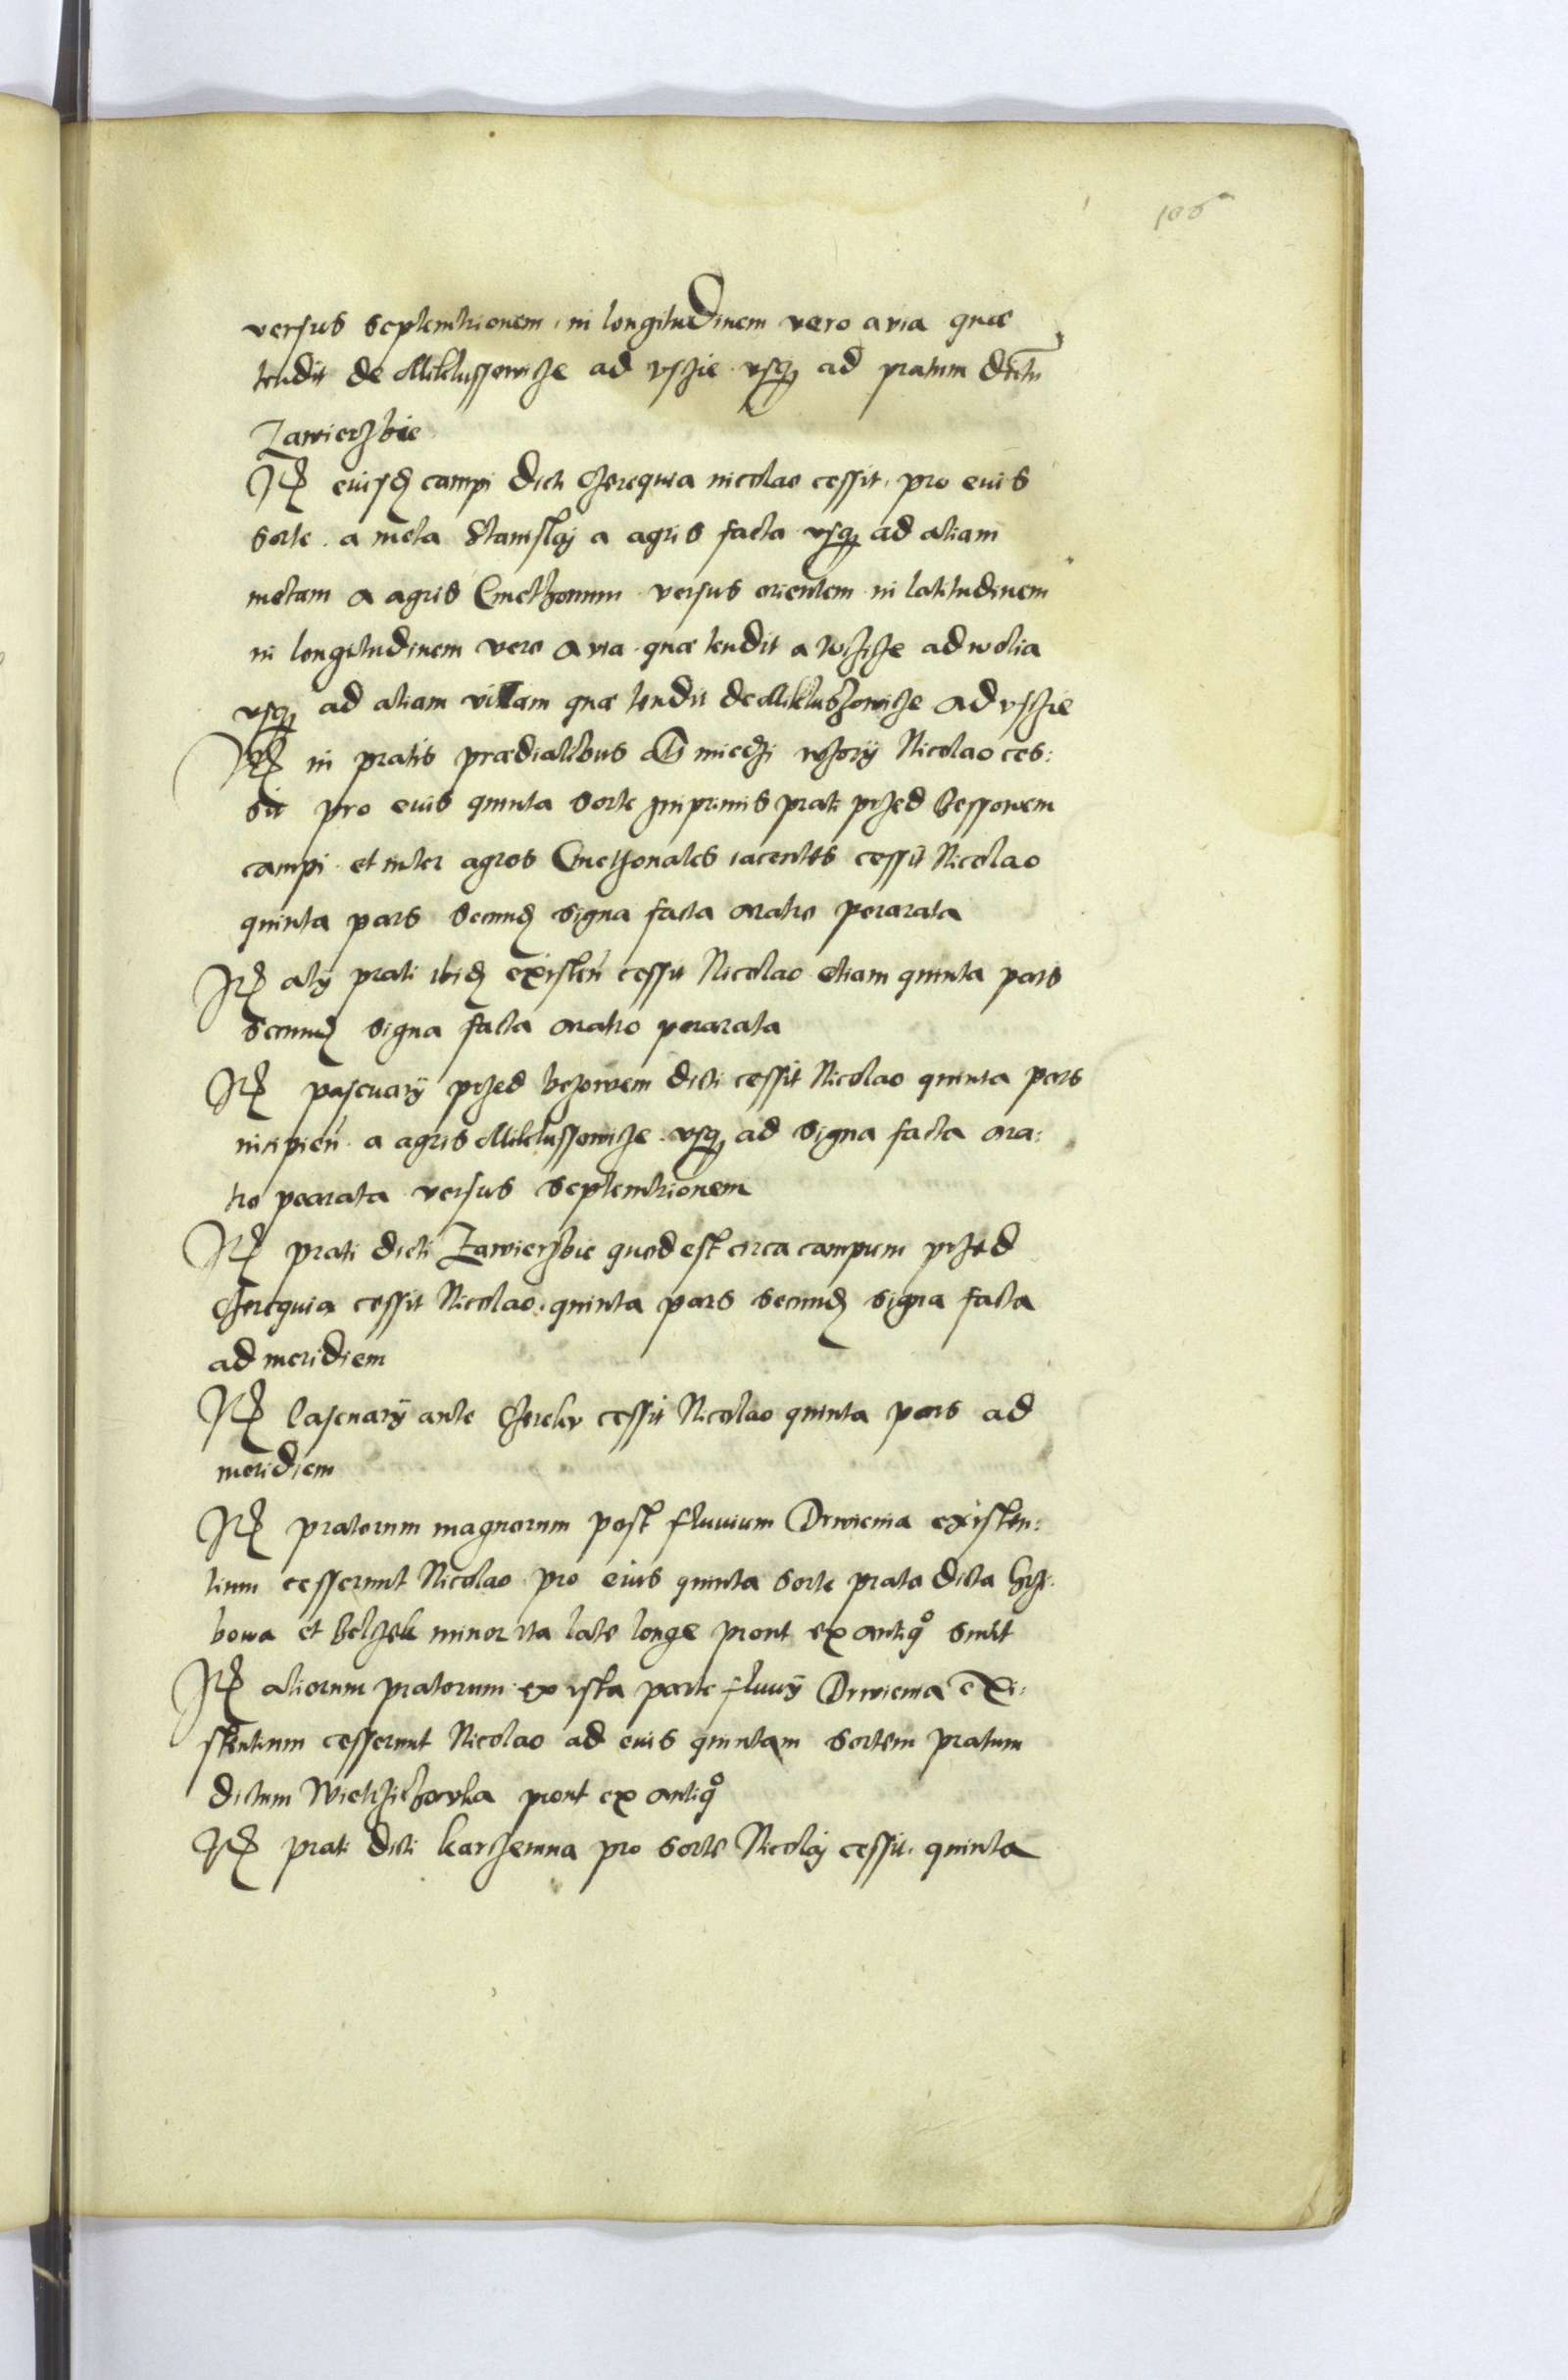 106
versus septemtrionem, in longitudinem vero a via quae
tendit de Miklussowicze ad vsczie vsq3 ad pratum dictu
Zawierzbie
Itẽ eiusdẽ campi dicti Czerequia nicolao cessit, pro euis
sorte a meta Stanislaj a agris facta vsq3 ad aliam
metam a agris Cmethonum versus orientem in latitudinem
in longitudinem vero a via quae tendit a ad wolia
vsq3 ad aliam viam quae tendit de Mikluszowicze ad vsczie
Itẽ in pratis praedialibus Nicolao ces:
sit pro euis quinta sorte Inprimis prati przed Bessowem
campi et inter agros Cmethonales iacentes cessit Nicolao
quinta pars secundũ signa facta aratro perarata
Itẽ alij prati ibidẽ existeñ cessit Nicolao etiam quinta pars
secundũ signa facta aratro perarata
Itẽ pascuarÿ przed bezowem dicti cessit Nicolao quinta pars
incipieñ a agris Miklussowicze vsq3 ad signa facta ara:
tro pearata versus septemtrionem
Itẽ prati dicti Zawierzbie quod est circa campum przed
Czerequia cessit Nicolao, quinta pars secundũ signa facta
ad meridiem
Itẽ ante cessit Nicolao quinta pars ad
meridiem
Itẽ pratorum magnorum post fluuium Drwienia existen:
tium cesserunt Nicolao pro eius quinta sorte prata dicta
bowa et minor ita late longe prout ex antiqº sunt
Itẽ aliorum pratorum ex ista parte fluuij Drwienia exi:
stentium cesserunt Nicolao ad euis quintam sortem pratum
dictum prout ex antiqº
Itẽ prati dicti karczemna pro sorte Nicolaj cessit, quinta